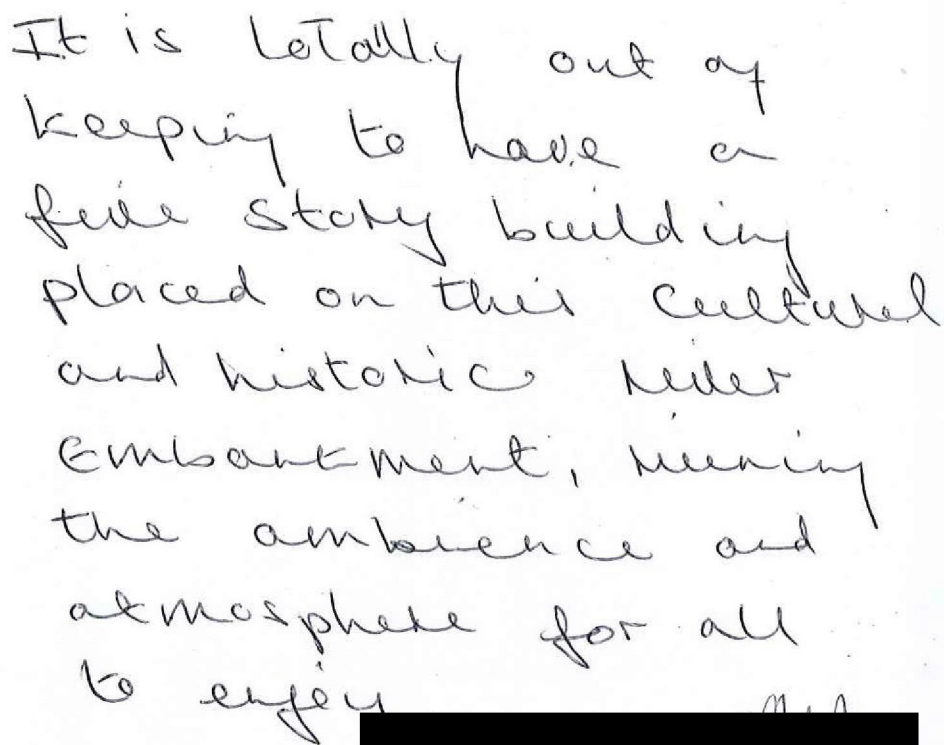 It is totally out of
keeping to have a
five story building
placed on this Cultural
and historic river
Embankment, ruining
the ambience and
atmosphere for all
to enjoy